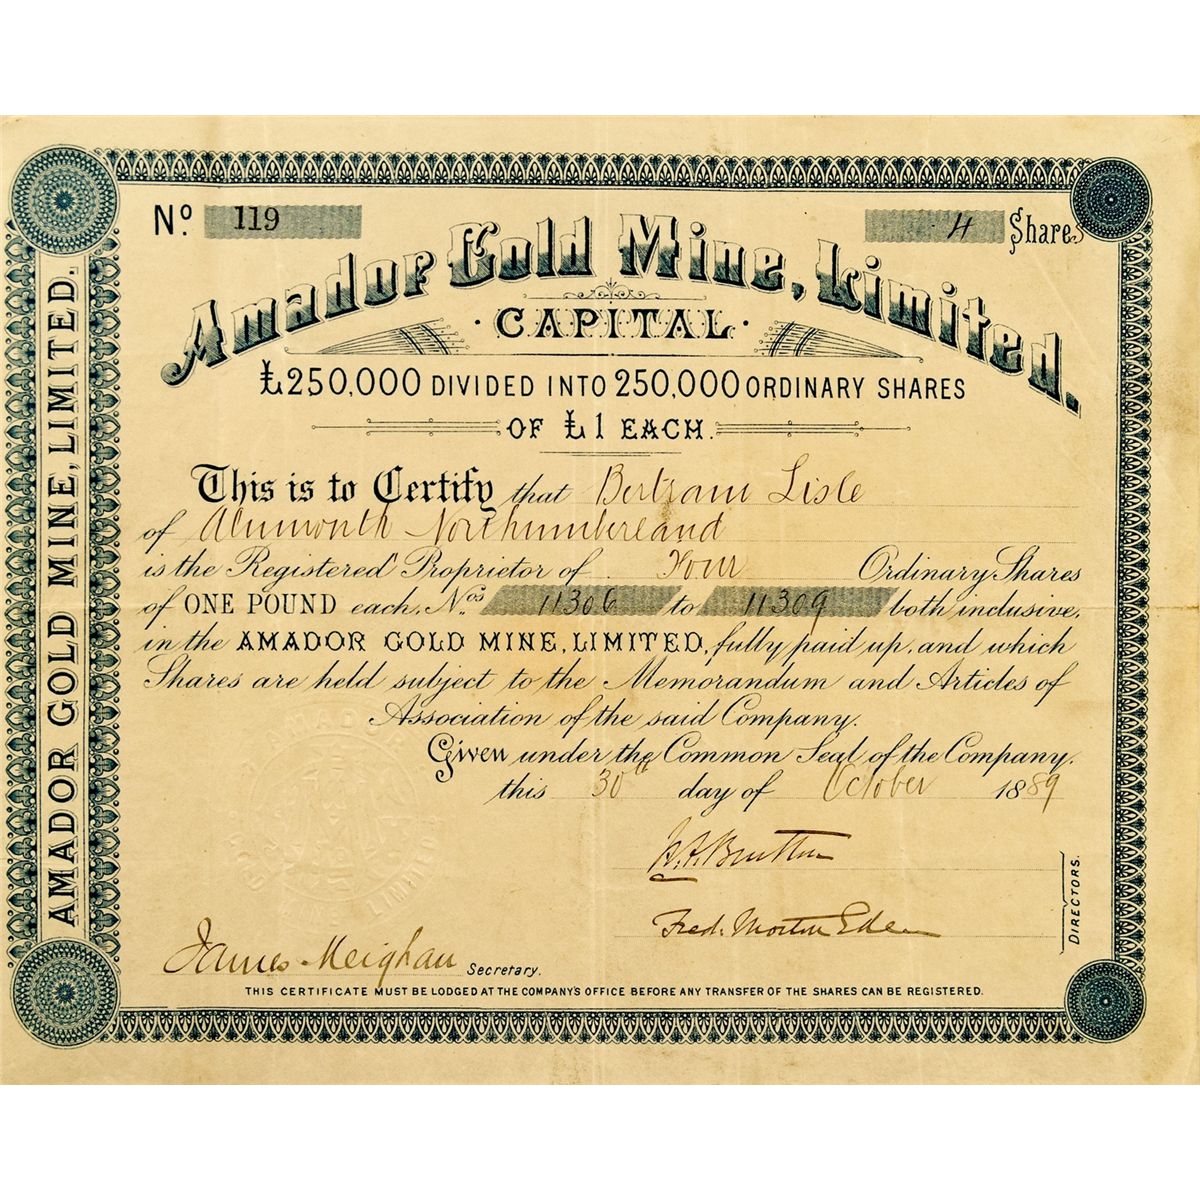 No. 119
4 Shares
Amador Gold Mine, Limited.
CAPITAL
£250,000 DIVIDED INTO 250,000 ORDINARY SHARES
OF £1 EACH.
This is to Certify that Bertram Lisle
of Alnmouth Northumberland
is the Registered Proprietor of Four Ordinary Shares
of ONE POUND each, Nos. 11306 to 11309 both inclusive,
in the AMADOR GOLD MINE, LIMITED, fully paid up, and which
Shares are held subject to the Memorandum and Articles of
Association of the said Company.
Given under the Common Seal of the Company.
this 30th day of October 1889
Fred. Morton Eden
DIRECTORS.
James Meighan Secretary.
THIS CERTIFICATE MUST BE LODGED AT THE COMPANY'S OFFICE BEFORE ANY TRANSFER OF THE SHARES CAN BE REGISTERED.
AMADOR GOLD MINE, LIMITED.